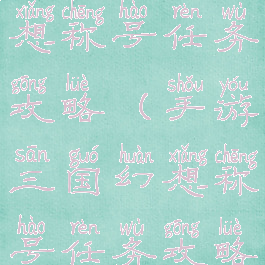 xiǎng chēng hào rèn wù
想称号任务
gōng lüè shǒu yóu
攻略（手游
sān guó huàn xiǎng chēng
三国幻想称
hào rèn wù gōng lüè
号任务攻略